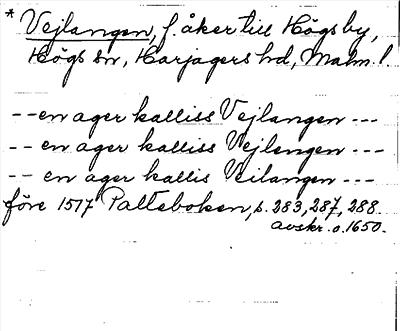 * Vejlangen, f. åker till Högsby,
Högs sn, Harjagers hd, Malm. l.
--en ager kalliss Vejlangen ---
-- en ager kalliss Vejlengen ---
-- en ager kallis Veilangen ---
före 1517 Palteboken, s. 283, 287, 288
avskr. o. 1650.